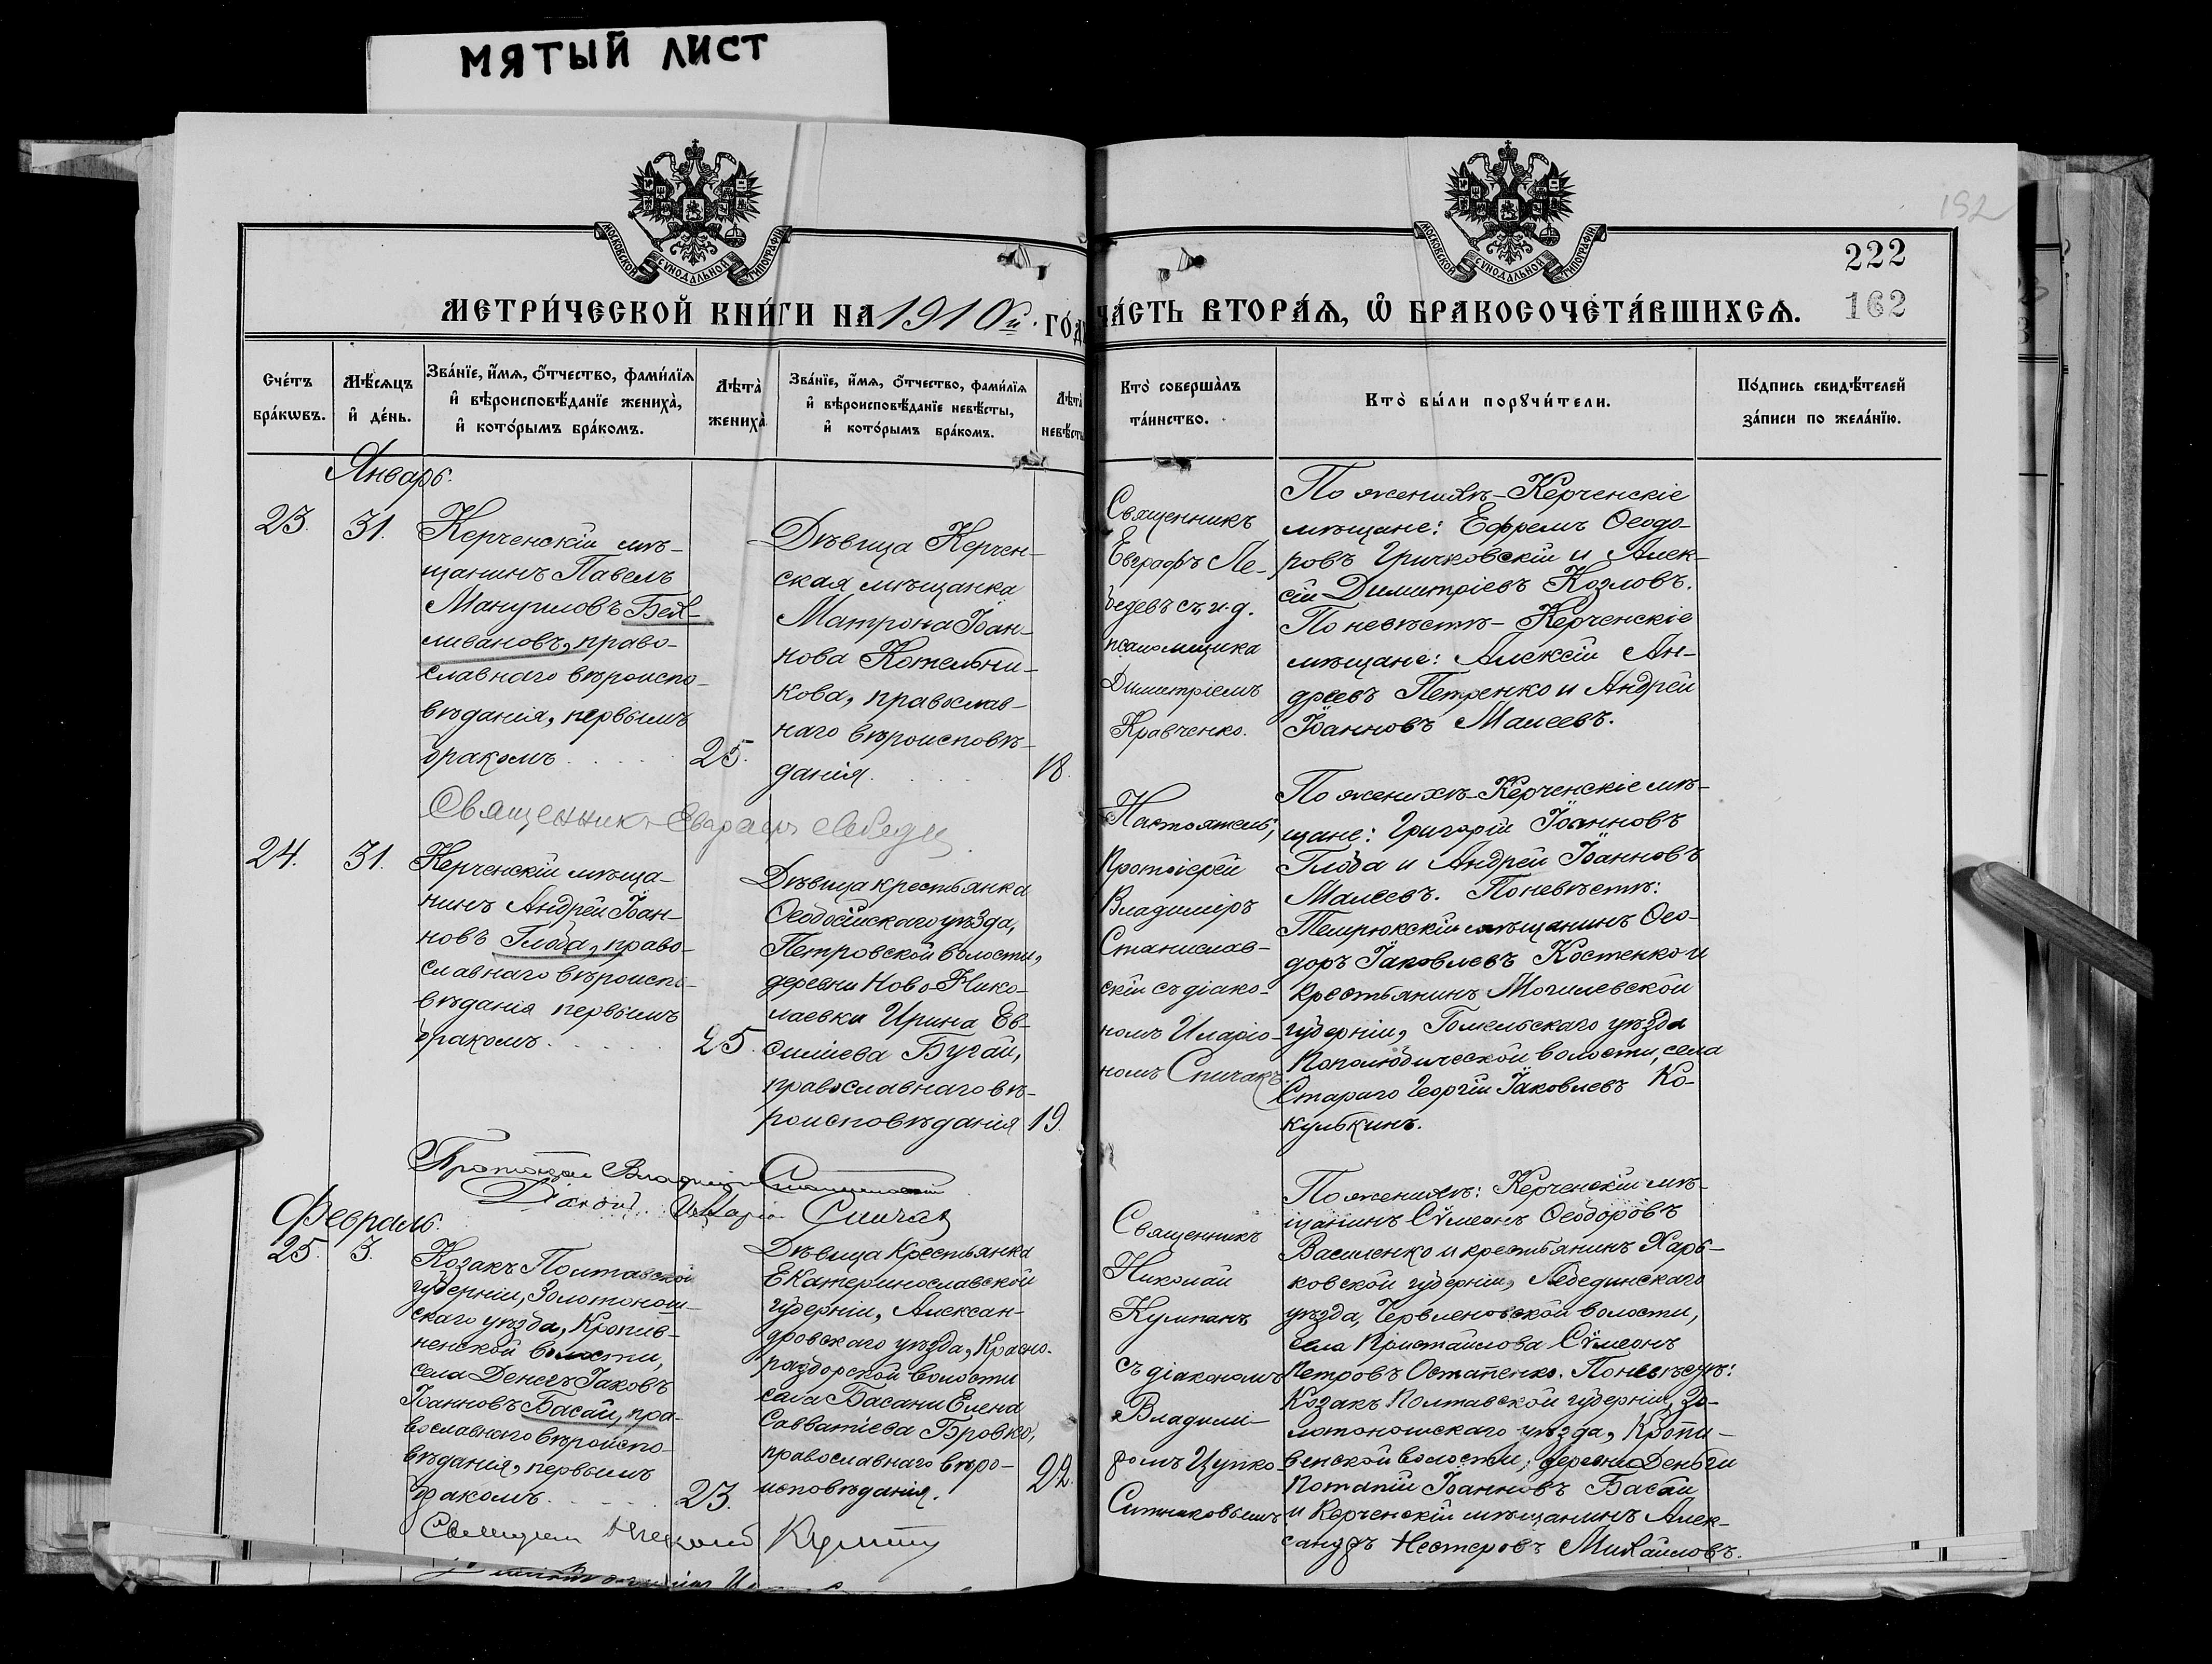 МЯТЫЙ ЛИСТ
МОСКОВСКОЙ СѴНОДАЛЬНОЙ ТИПОГРАФІИ
МОСКОВСКОЙ СѴНОДАЛЬНОЙ ТИПОГРАФІИ
192
222
162
МЕТРИ́ЧЕСКОЙ КНИ́ГИ НА 1910й ГО́ДЪ
ЧА́СТЬ ВТОРА́Ѧ, Ѡ҆ БРАКОСОЧЕТА́ВШИХСѦ.
Сче́тъ
бра́кѡвъ.
Мѣ́сѧцъ
и҆ де́нь.
Зва́нїе, и҆́мѧ, ѻ҆́тчество, фами́лїѧ
и҆ вѣроисповѣ́данїе жениха̀,
и҆ кото́рымъ бра́комъ.
Лѣта̀
жениха̀.
Зва́нїе, и҆́мѧ, ѻ҆́тчество, фами́лїѧ
и҆ вѣроисповѣ́данїе невѣ́сты,
и҆ кото́рымъ бра́комъ.
Лѣта̀
невѣ́сты
Кто̀ соверша́лъ
та́инство.
Кто̀ бы́ли порꙋчи́тели.
По́дпись свидѣ́телей
за́писи по жела́нїю.
Январь.
23.
31.
Керченскій мѣ-
щанинъ Павелъ
Мануиловъ Бей-
ливановъ, право-
славнаго вѣроиспо-
вѣданія, первымъ
бракомъ . . . . .
25.
Дѣвица Керчен-
ская мѣщанка
Матрона Іоан-
нова Котельни-
кова, православ-
наго вѣроисповѣ-
данія . . . .
18.
Священникъ
Евграфъ Ле-
бедевъ съ и.д.
псаломщика
Димитріемъ
Кравченко.
По женихѣ - Керченскіе
мѣщане: Ефремъ Ѳеодо-
ровъ Гричковскій и Алек-
сій Димитріевъ Козловъ.
По невѣстѣ - Керченскіе
мѣщане: Алексій Ан-
дреевъ Петренко и Андрей
Іоанновъ Малеевъ.
Священникъ Евграфъ Лебедев
24.
31.
Керченскій мѣща-
нинъ Андрей Іоан-
новъ Глоба, право-
славнаго вѣроиспо-
вѣданія первымъ
бракомъ . . . . .
25.
Дѣвица крестьянка
Ѳеодосійскаго уѣзда,
Петровской волости,
деревни Ново-Нико-
лаевки Ирина Ев-
силіева Бугай,
православнаго вѣ-
роисповѣданія
19.
Настоятель,
Протоіерей
Владиміръ
Станислав-
скій съ діако-
номъ Иларіо-
номъ Спичакъ
По женихѣ - Керченскіе мѣ-
щане: Григорій Іоанновъ
Глоба и Андрей Іоанновъ
Малеевъ. По невѣстѣ:
Темрюкскій мѣщанинъ Ѳео-
доръ Іаковлевъ Костенко и
крестьянинъ Могилевской
губерніи, Гомельскаго уѣзда
Поколюбической волости, села
Стараго Георгій Іаковлевъ Ко-
кулькинъ.
Протоіерей Владиміръ Станиславскій
Діаконъ Иларіонъ Спичак
Февраль.
25.
3.
Козакъ Полтавской
губерніи, Золотонош-
скаго уѣзда, Кропив-
ненской волости,
села Денегъ Іаковъ
Іоанновъ Басай, пра-
вославнаго вѣроиспо-
вѣданія, первымъ
бракомъ . . . . .
23.
Дѣвица крестьянка
Екатеринославской
губерніи, Алексан-
дровскаго уѣзда, Красно-
раздорской волости
села Басани Елена
Савватіева Бровко,
православнаго вѣро-
исповѣданія.
22.
Священникъ
Николай
Кумпанъ
съ діакономъ
Владимі-
ромъ Цупко-
Ситниковымъ
По женихѣ: Керченскій мѣ-
щанинъ Сѵмеонъ Ѳеодоровъ
Василенко и крестьянинъ Харь-
ковской губерніи, Лебединскаго
уѣзда, Червленовской волости,
села Пристайлова Сѵмеонъ
Петровъ Остапенко. По невѣстѣ:
Козакъ Полтавской губерніи, Зо-
лотоношскаго уѣзда, Кропи-
венской волости, деревни Деньги
Потапій Іоанновъ Басай
и Керченскій мѣщанинъ Алек-
сандръ Нестеровъ Михайловъ.
Священник Николай Кумпан